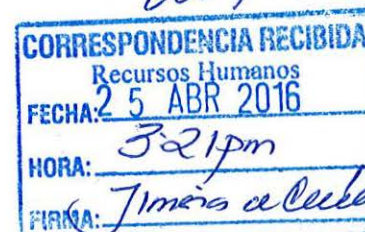 CORRESPONDENCIA RECIBIDA
Recursos Humanos
FECHA: 25 ABR 2016
HORA: 3:21pm
FIRMA: